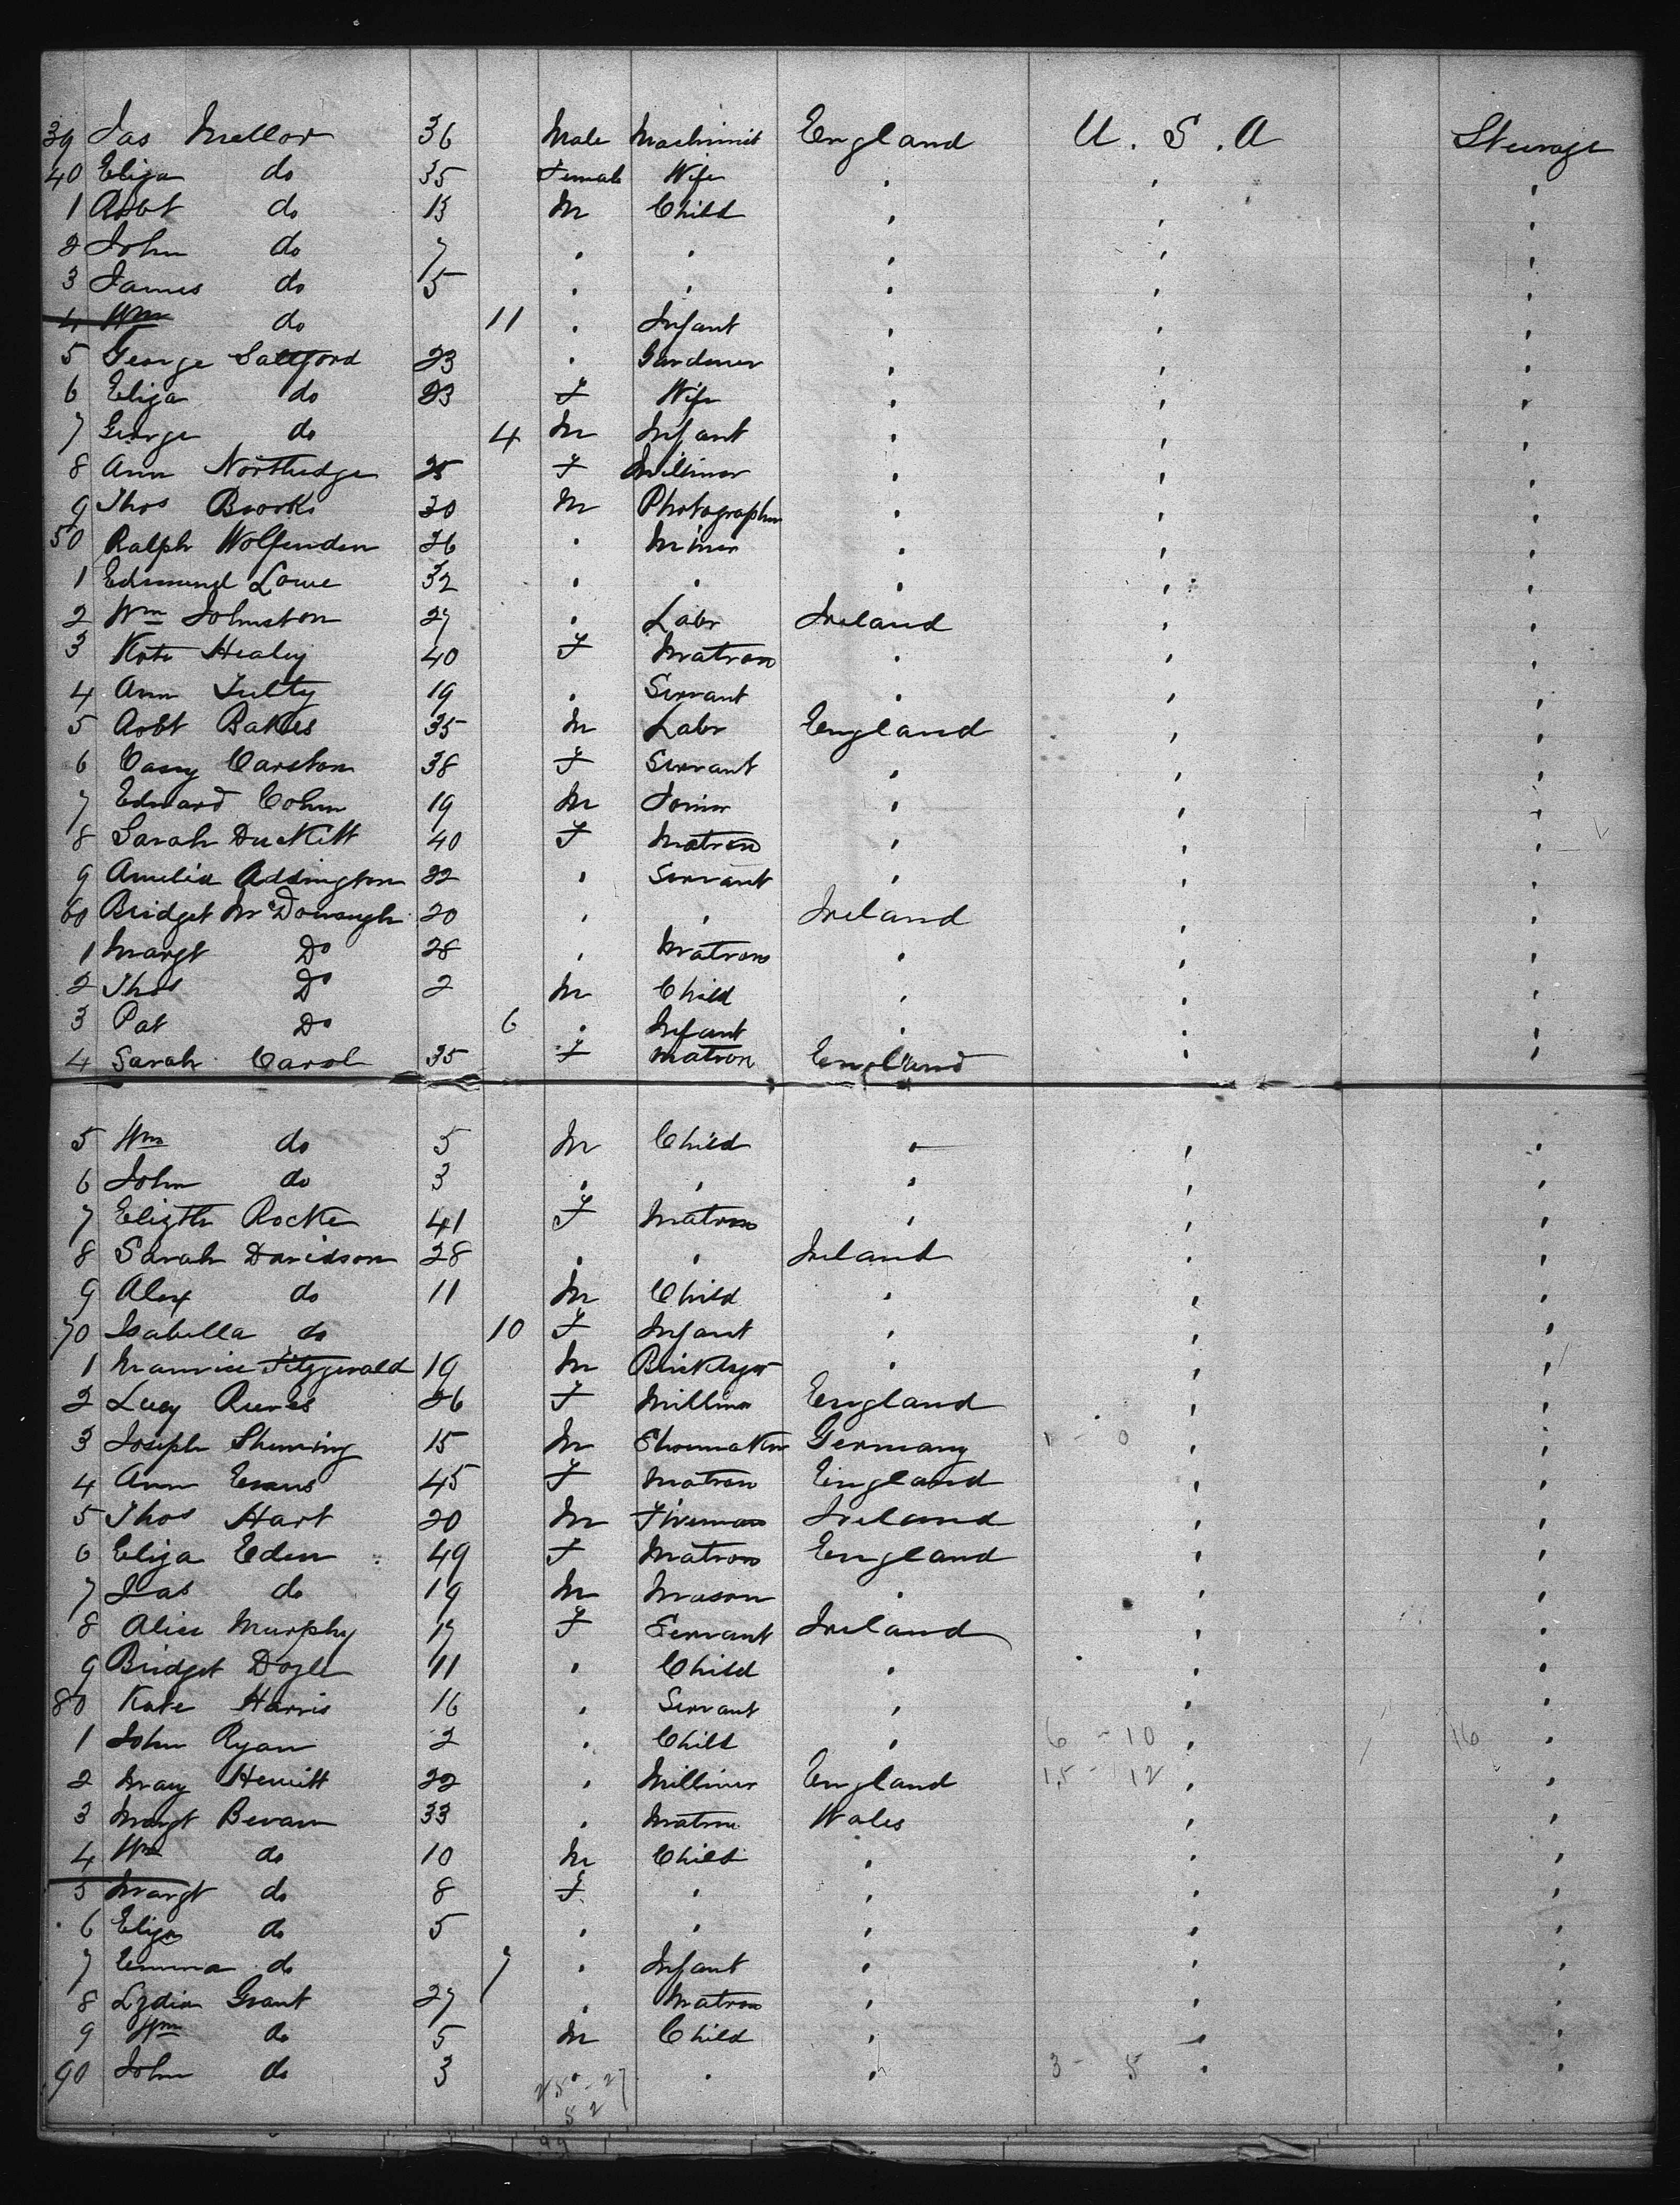 39 Jas Mellor 36 Male Machinist England U. S. A Steerage
40 Eliza do 35 Female Wife " " "
1 Robt do 13 M Child " " "
2 John do 7 " " " " "
3 James do 5 " " " " "
4 Wm do 11 " Infant " " "
5 George Saltford 23 " Gardener " " "
6 Eliza do 23 F Wife " " "
7 George do 4 M Infant " " "
8 Ann Northidge 25 F Milliner " " "
9 Thos Brooks 30 M Photographer " " "
50 Ralph Wolfenden 26 " Miner " " "
1 Edmund Lowe 32 " " " " "
2 Wm Johnston 27 " Labr Ireland " "
3 Kate Healey 40 F Matron " " "
4 Ann Tulty 19 " Servant " " "
5 Robt Bakes 35 M Labr England " "
6 Casy Carston 38 F Servant " " "
7 Edward Cohen 19 M Joiner " " "
8 Sarah Duckitt 40 F Matron " " "
9 Amelia Addington 22 " Servant " " "
60 Bridget McDonough 20 " " Ireland " "
1 Margt Do 28 " Matron " " "
2 Thos Do 2 M Child " " "
3 Pat Do 6 " Infant " " "
4 Sarah Carol 35 F Matron England " "
5 Wm do 5 M Child " " "
6 John do 3 " " " " "
7 Elizth Rocke 41 F Matron " " "
8 Sarah Davidson 28 " " Ireland " "
9 Alex do 11 M Child " " "
70 Isabella do 10 F Infant " " "
1 Maurice Fitzgerald 19 M Bricklayer " " "
2 Lucy Reeves 26 F Milliner England " "
3 Joseph 15 M Shoemaker Germany " "
4 Ann Evans 45 F Matron England " "
5 Thos Hart 20 M Fireman Ireland " "
6 Eliza Eden 49 F Matron England " "
7 Jas do 19 M Mason " " "
8 Alice Murphy 17 F Servant Ireland " "
9 Bridget Doyle 11 " Child " " "
80 Kate Harris 16 " Servant " " "
1 John Ryan 2 " Child " 6 - 10 " 16 "
2 Mary Hewitt 22 " Milliner England 15 - 12 " "
3 Margt Bevan 33 " Matron Wales " "
4 Wm do 10 M Child " " "
5 Margt do 8 F " " " "
6 Eliza do 5 " " " " "
7 Emma do 7 " Infant " " "
8 Lydia Grant 27 " Matron " " "
9 Wm do 5 M Child " " "
90 John do 3 " " " 3 - 8 " "